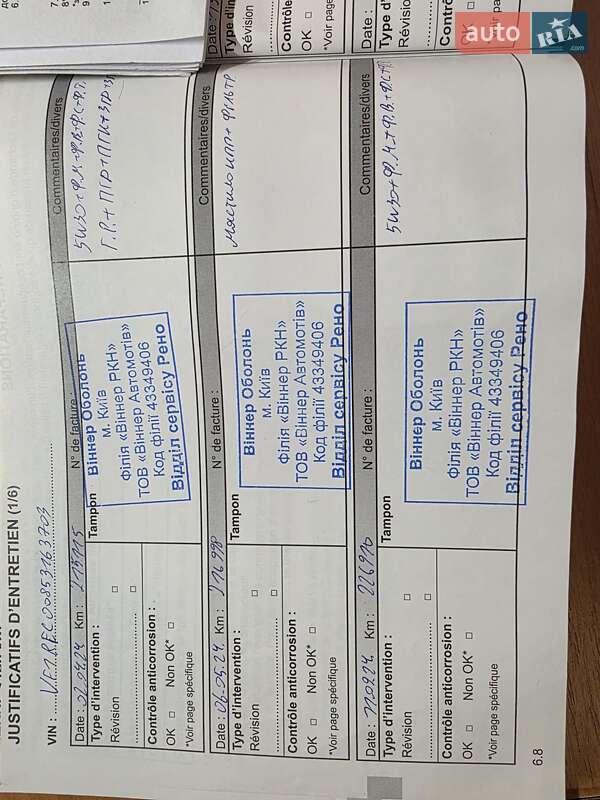 JUSTIFICATIFS D'ENTRETIEN (1/6)
VIN :
Date : 02.04.24 Km : N° de facture : Commentaires/divers
Type d'intervention : Tampon
Révision
Contrôle anticorrosion :
OK Non OK*
*Voir page spécifique
Віннер Оболонь
м. Київ
Філія «Віннер РКН»
ТОВ «Віннер Автомотів»
Код філії 43349406
Відділ сервісу Рено
5W30+Ф.М+Ф.В+ФС+Ф.П.
Date : 06.05.24 Km : N° de facture : Commentaires/divers
Type d'intervention : Tampon
Révision
Contrôle anticorrosion :
OK Non OK*
*Voir page spécifique
Віннер Оболонь
м. Київ
Філія «Віннер РКН»
ТОВ «Віннер Автомотів»
Код філії 43349406
Відділ сервісу Рено
Date : Km : N° de facture : Commentaires/divers
Type d'intervention : Tampon
Révision
Contrôle anticorrosion :
OK Non OK*
*Voir page spécifique
Віннер Оболонь
м. Київ
Філія «Віннер РКН»
ТОВ «Віннер Автомотів»
Код філії 43349406
Відділ сервісу Рено
6.8
Type d'in
Révision
Contrôle
OK
*Voir page
Date :
Type
Révision
Contrô
OK
*Voir p
auto RIA .com